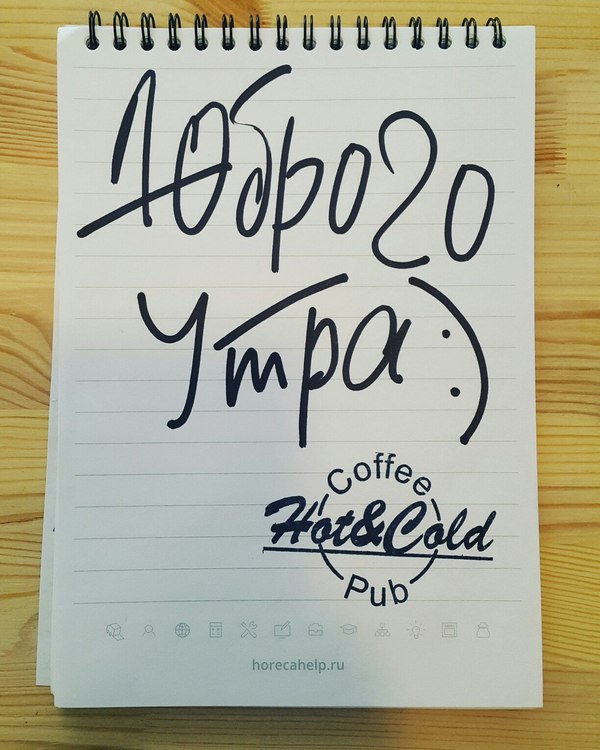 Доброго
Утра:)
Coffee
Hot&Cold
Pub
horecahelp.ru